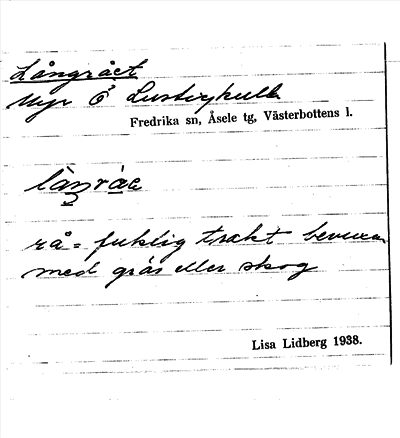 Långrået
Myr Ö Lustigkulla
Fredrika sn, Åsele tg, Västerbottens l.
rå = fuktig trakt bevuxen
med gräs eller skog
Lisa Lidberg 1938.